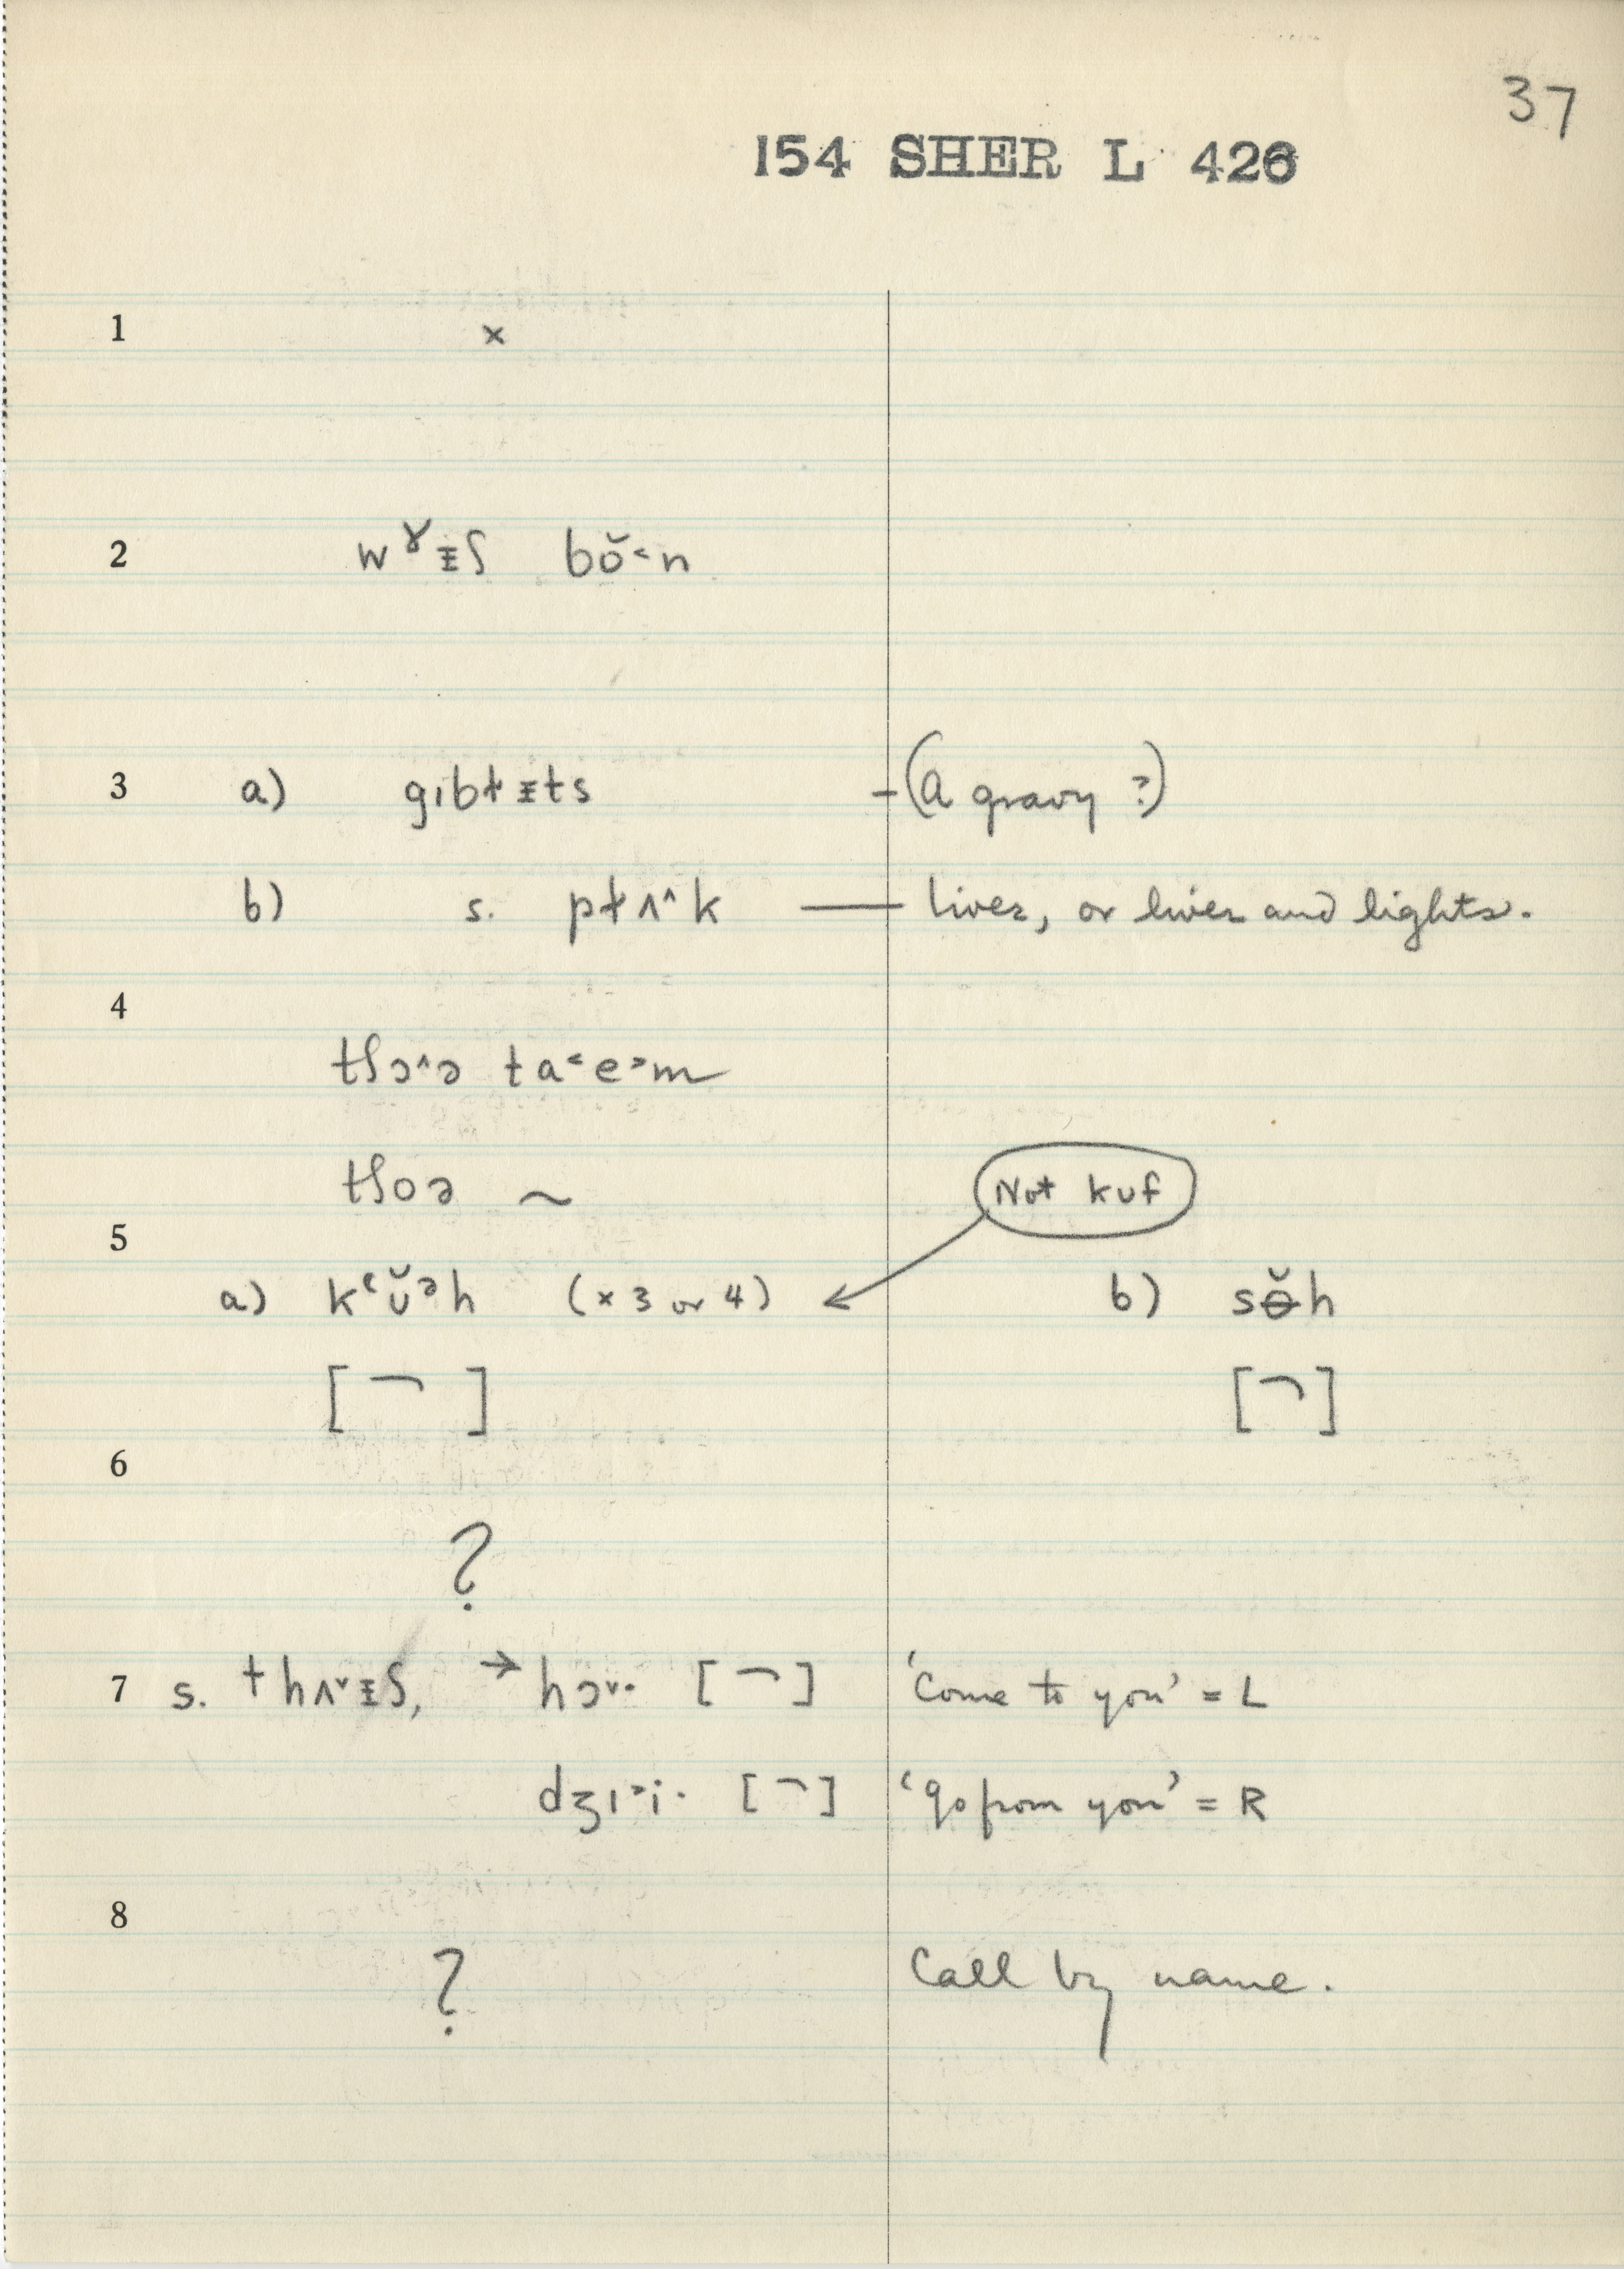 37
154 SHER L 426
1 ×
2 wˠᵻʃ bŏ˂n
3 a) gɪbɫᵻts – (A gravy ?)
b) s. pɫʌ˄k — liver, or liver and lights.
4
tʃɔ˄ə ta˂e˃m
tʃoə ~
Not kuf
5
a) kʻʊ̆ᵊh (×3 or 4) b) sɵ̆h
[¬] [¬]
6
?
7 s. thʌ˅ᵻʃ, → hɔ˅· [¬] 'Come to you' = L
dʒɪ˃i· [¬] 'go from you' = R
8
? Call by name.